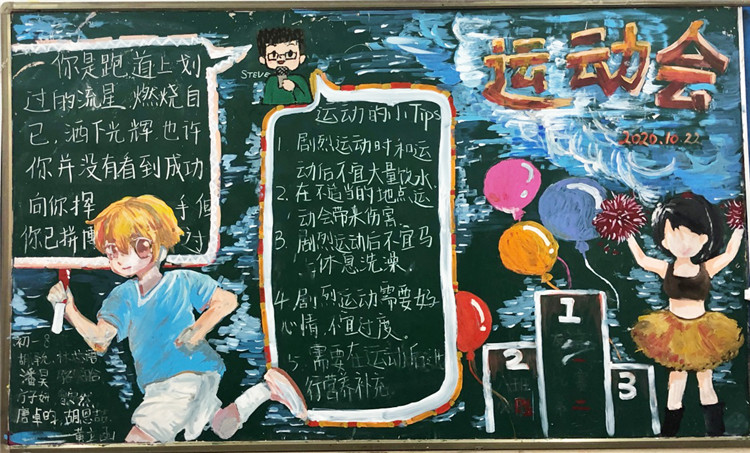 你是跑道上划
过的流星 燃烧自
己,洒下光辉 也许
你并没有看到成功
向你挥 手 但
你已拼 过
STEVE
运动的小Tips
1. 剧烈运动时和运
动后不宜大量饮水.
2. 在不适当的地点运
动会带来伤害.
3. 剧烈运动后不宜马
休息洗澡.
4. 剧烈运动需要好
心情,不宜过度.
5. 需要在运动后进
行营养补充
运动会
2020.10.22
1
2
3
初一 8
潘昊
胡恩